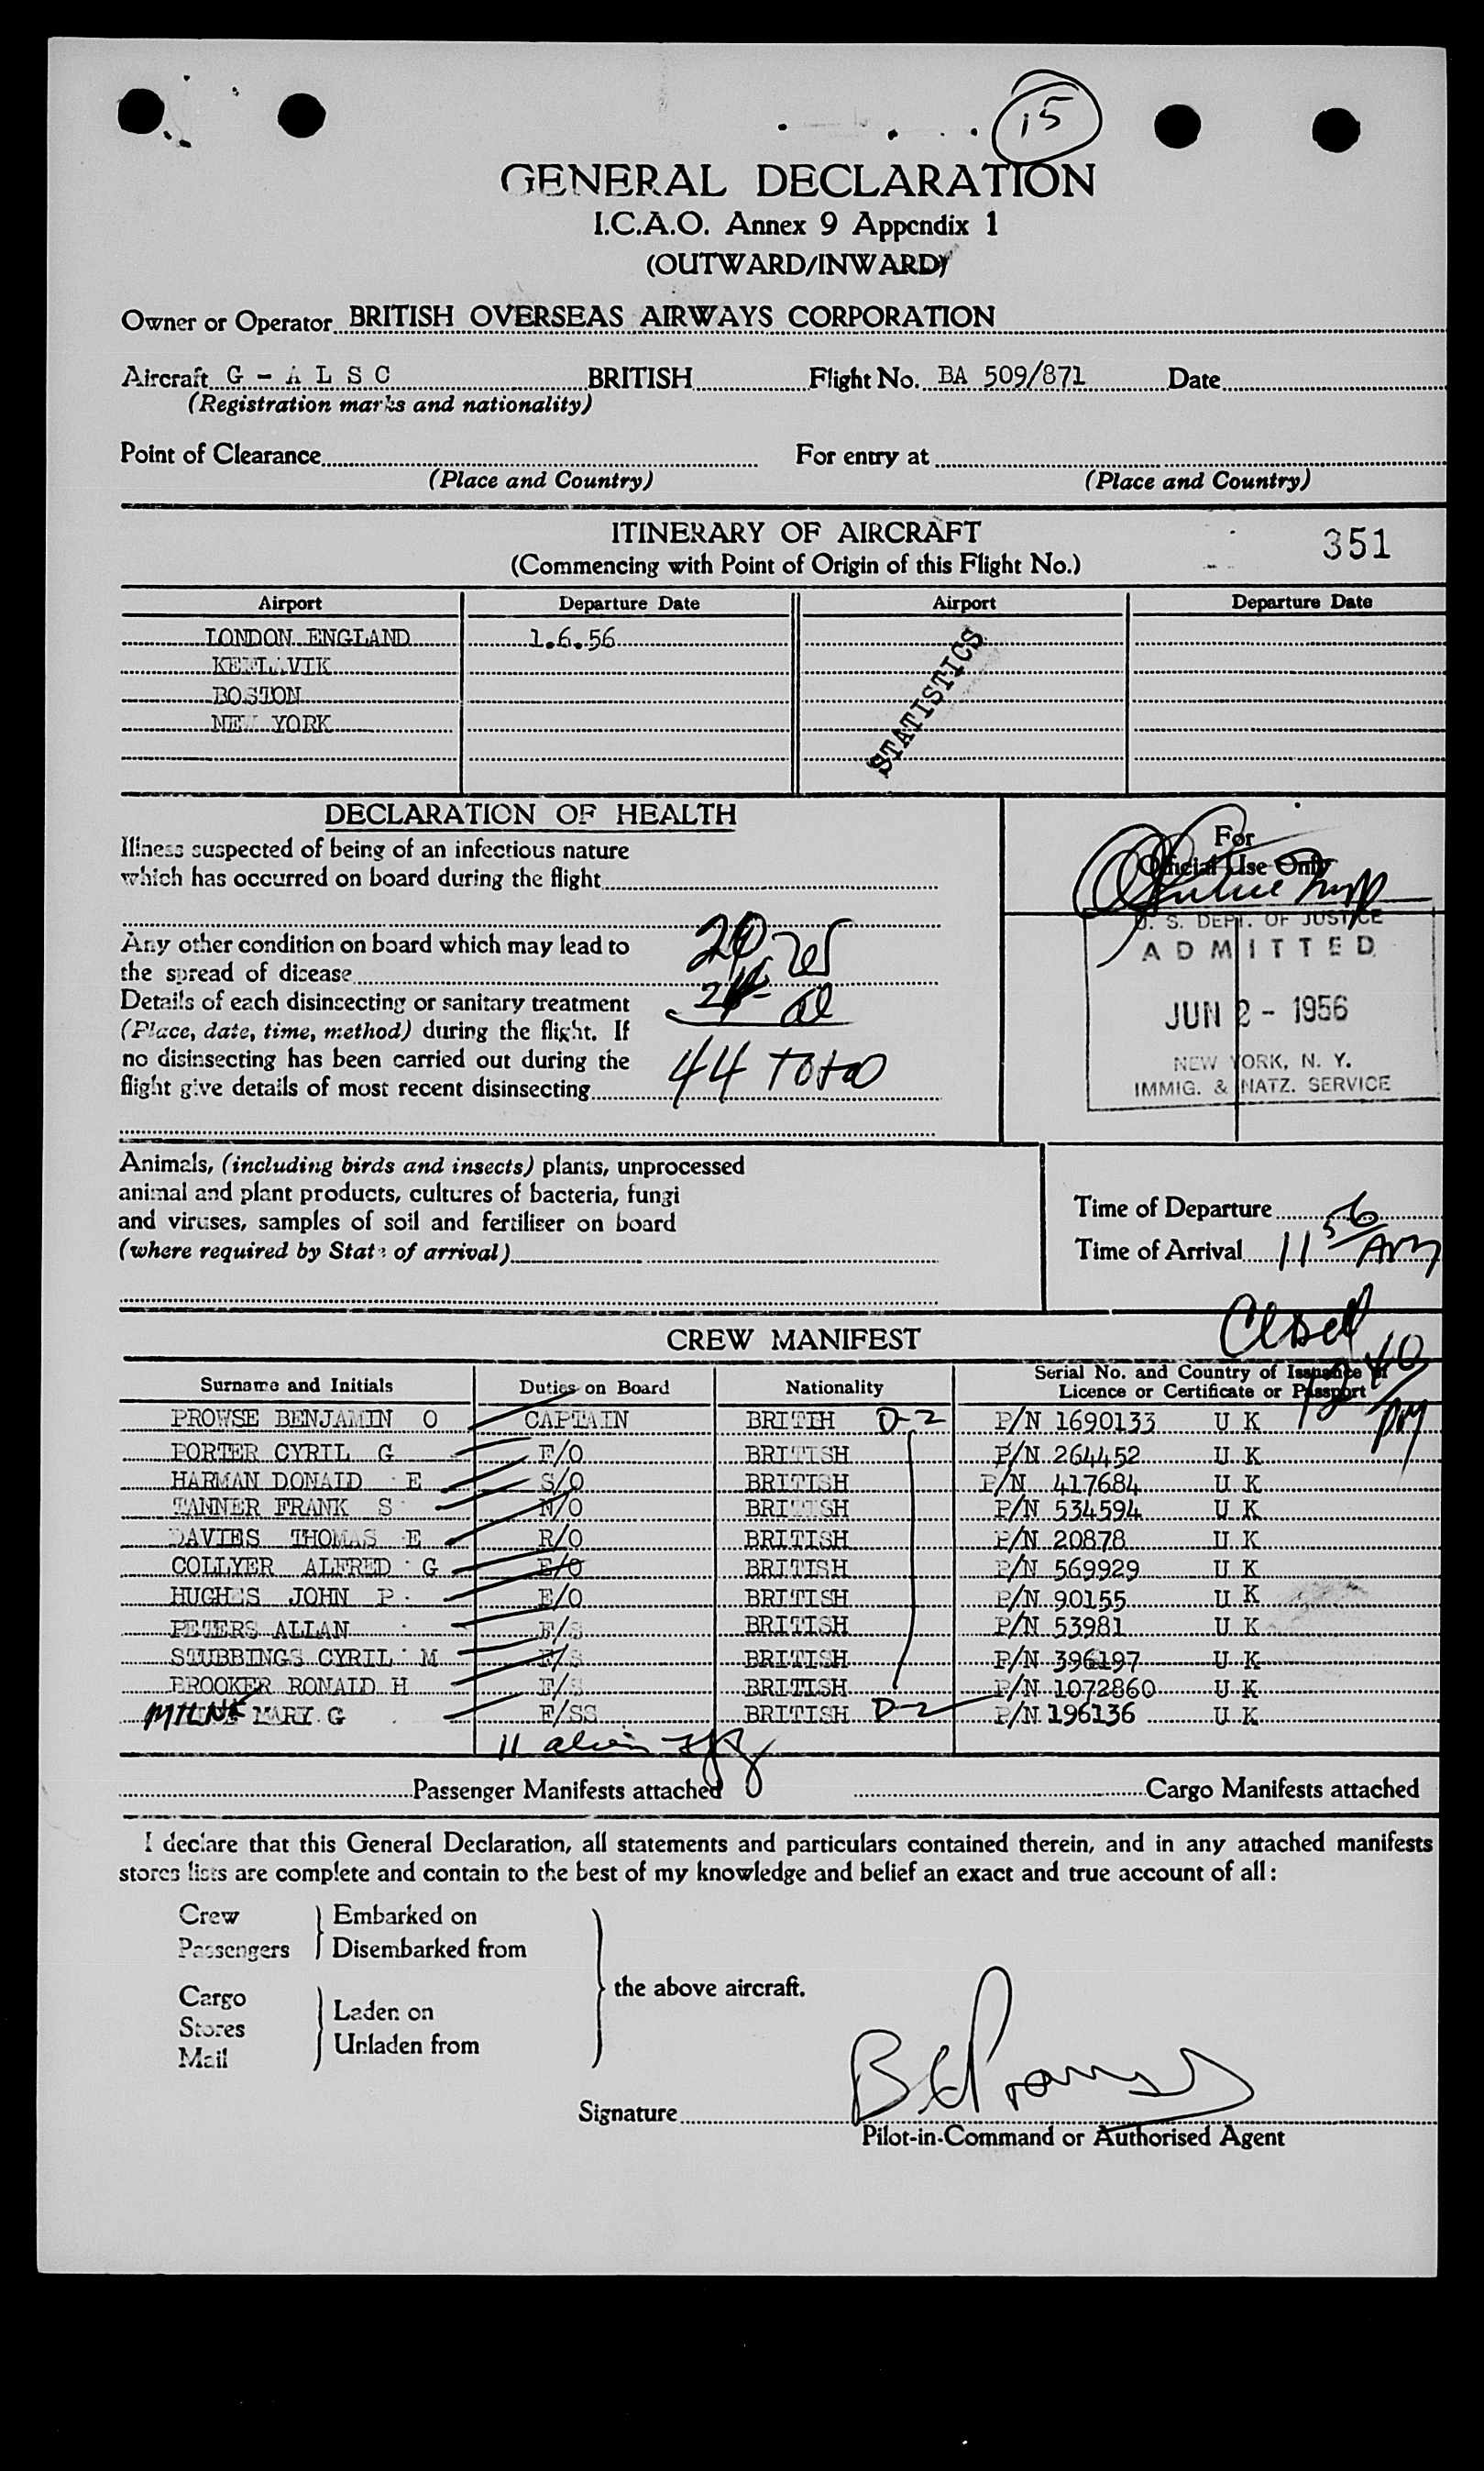 15
GENERAL DECLARATION
I.C.A.O. Annex 9 Appendix 1
(OUTWARD/INWARD)
Owner or Operator BRITISH OVERSEAS AIRWAYS CORPORATION
Aircraft G - A L S C BRITISH Flight No. BA 509/871 Date
(Registration marks and nationality)
Point of Clearance For entry at
(Place and Country) (Place and Country)
ITINERARY OF AIRCRAFT
351
(Commencing with Point of Origin of this Flight No.)
Airport Departure Date Airport Departure Date
LONDON ENGLAND 1.6.56
KEFLAVIK
BOSTON
NEW YORK
STATISTICS
DECLARATION OF HEALTH
For
Official Use Only
Illness suspected of being of an infectious nature
which has occurred on board during the flight
Any other condition on board which may lead to
the spread of disease
Details of each disinsecting or sanitary treatment
(Place, date, time, method) during the flight. If
no disinsecting has been carried out during the
flight give details of most recent disinsecting
44 Total
U. S. DEPT. OF JUSTICE
ADMITTED
JUN 2 - 1956
NEW YORK, N. Y.
IMMIG. & NATZ. SERVICE
Animals, (including birds and insects) plants, unprocessed
animal and plant products, cultures of bacteria, fungi
and viruses, samples of soil and fertiliser on board
(where required by State of arrival)
Time of Departure
Time of Arrival 11 56 AM
CREW MANIFEST
Surname and Initials Duties on Board Nationality Serial No. and Country of Issuance of
Licence or Certificate or Passport
PROWSE BENJAMIN O CAPTAIN BRITIH D-2 P/N 1690133 U K
PORTER CYRIL G F/O BRITISH P/N 264452 U K
HARMAN DONALD E S/O BRITISH P/N 417684 U K
TANNER FRANK S N/O BRITISH P/N 534594 U K
DAVIES THOMAS E R/O BRITISH P/N 20878 U K
COLLYER ALFRED G E/O BRITISH P/N 569929 U K
HUGHES JOHN P E/O BRITISH P/N 90155 U K
PETERS ALLAN F/S BRITISH P/N 53981 U K
STUBBINGS CYRIL M F/S BRITISH P/N 396197 U K
BROOKER RONALD H F/S BRITISH P/N 1072860 U K
MILNE MARY G F/SS BRITISH D-2 P/N 196136 U K
11 alien
Passenger Manifests attached Cargo Manifests attached
I declare that this General Declaration, all statements and particulars contained therein, and in any attached manifests
stores lists are complete and contain to the best of my knowledge and belief an exact and true account of all:
Crew Embarked on
Passengers Disembarked from
the above aircraft.
Cargo
Stores Laden on
Mail Unladen from
Signature
Pilot-in-Command or Authorised Agent